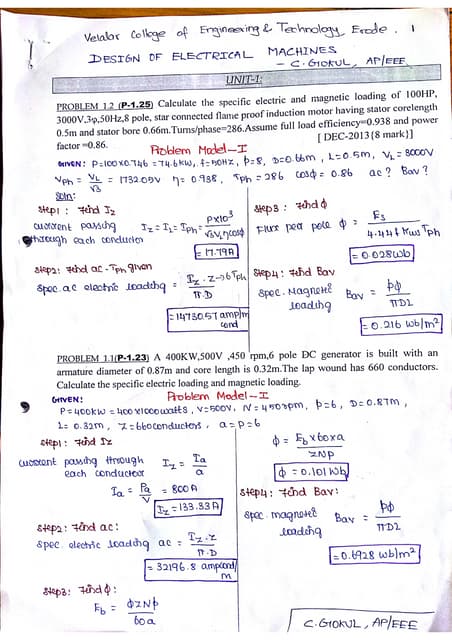 Velalar College of Engineering & Technology, Erode. 1
DESIGN OF ELECTRICAL MACHINES
- C. GOKUL, AP/EEE
UNIT-1:
PROBLEM 1.2 (P-1.25) Calculate the specific electric and magnetic loading of 100HP,
3000V,3φ,50Hz,8 pole, star connected flame proof induction motor having stator corelength
0.5m and stator bore 0.66m.Turns/phase=286.Assume full load efficiency=0.938 and power
factor =0.86. [ DEC-2013{8 mark}]
Problem Model-I
GIVEN: P=100x0.746 = 74.6KW, f=50HZ, p=8, D=0.66m, L=0.5m, VL=3000V
Vph = VL/√3 = 1732.05V η=0.938, Tph = 286 cosφ = 0.86 ac? Bav?
Soln:
Step1: Find Iz
current passing through each conductor
Iz = IL = Iph = Px10³/√3 VL η cosφ
= 17.79A
Step2: Find ac - Tph given
Spec. ac electric loading = Iz.Z→6Tph/π.D
= 14730.57 amp/m cond
Step3: Find φ
Flux per pole φ = Es/4.44 f Kws Tph
= 0.028wb
Step4: Find Bav
Spec. Magnetic loading Bav = pφ/πDL
= 0.216 wb/m²
PROBLEM 1.1(P-1.23) A 400KW,500V ,450 rpm,6 pole DC generator is built with an
armature diameter of 0.87m and core length is 0.32m.The lap wound has 660 conductors.
Calculate the specific electric loading and magnetic loading.
GIVEN: Problem Model-I
P=400KW = 400x1000watts, V=500V, N=450rpm, p=6, D=0.87m,
L=0.32m, Z=660conductors, a=p=6
Step1: Find Iz
current passing through each conductor
Iz = Ia/a
Ia = Pa/V = 800A
Iz = 133.33A
Step2: Find ac:
Spec. electric loading ac = Iz.Z/π.D
= 32196.8 ampcond/m
Step3: Find φ:
Eb = φZNp/60a
φ = Eb x60xa/ZNp
φ = 0.101Wb
Step4: Find Bav:
Spec. magnetic loading Bav = pφ/πDL
= 0.6928 wb/m²
C. GOKUL, AP/EEE